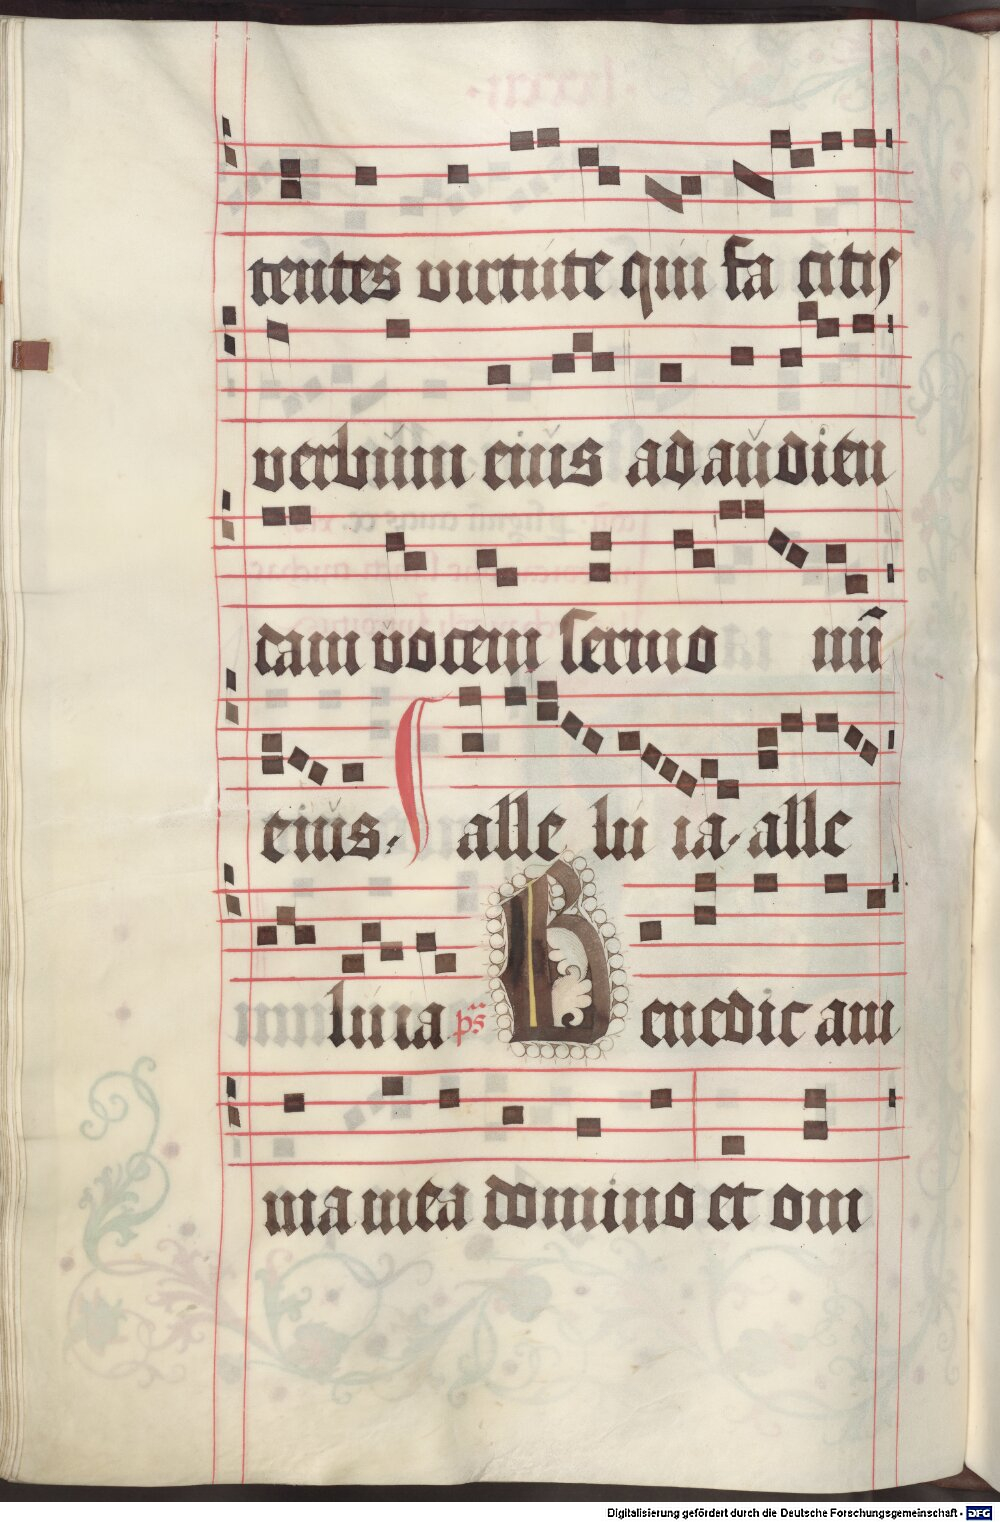 tentes virtute qui fa citis
verbum eius ad audien
dam vocem sermo nū
eius. alle lu ia. alle
lu ia ps Benedic am
ma mea domino et om
Digitalisierung gefördert durch die Deutsche Forschungsgemeinschaft - DFG